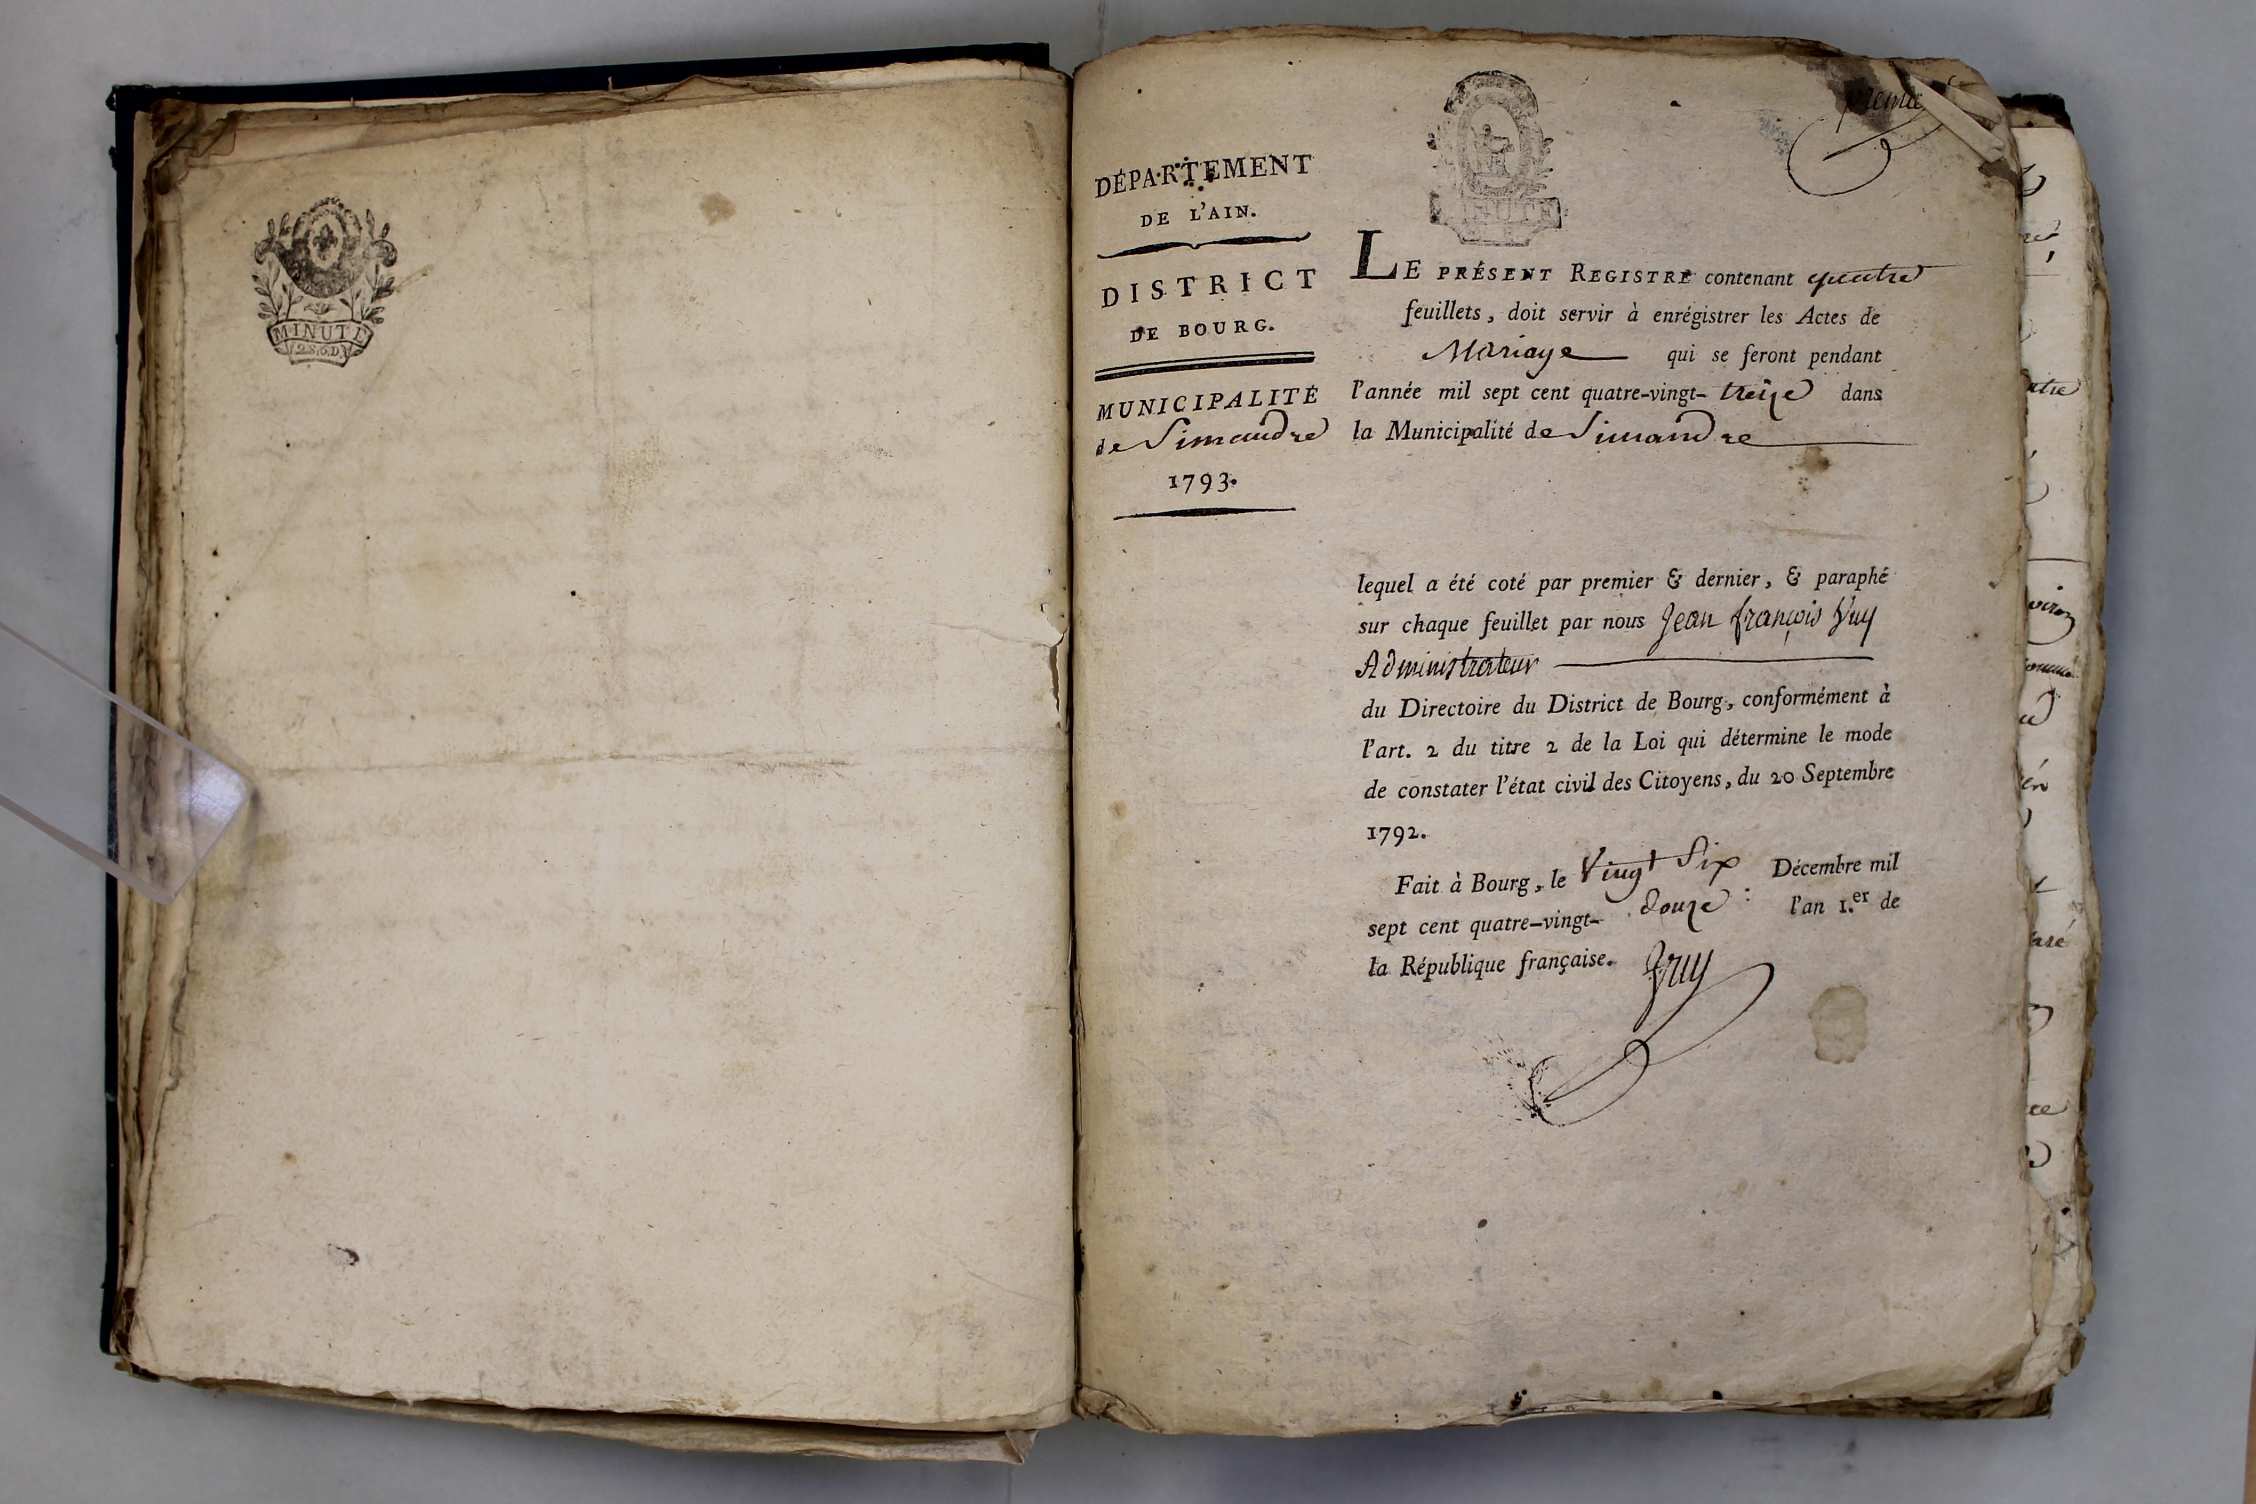 MINUTE
premie
DÉPARTEMENT
DE L'AIN.
DISTRICT
DE BOURG.
MUNICIPALITÉ
de Simandre
1793.
MINUTE
LE PRÉSENT REGISTRE contenant quatre
feuillets, doit servir à enrégistrer les Actes de
Mariage qui se feront pendant
l'année mil sept cent quatre-vingt-treize dans
la Municipalité de Simandre
lequel a été coté par premier & dernier, & paraphé
sur chaque feuillet par nous Jean françois
Administrateur
du Directoire du District de Bourg, conformément à
l'art. 2 du titre 2 de la Loi qui détermine le mode
de constater l'état civil des Citoyens, du 20 Septembre
1792.
Fait à Bourg, le Vingt Six Décembre mil
sept cent quatre-vingt-douze : l'an 1.er de
la République française.